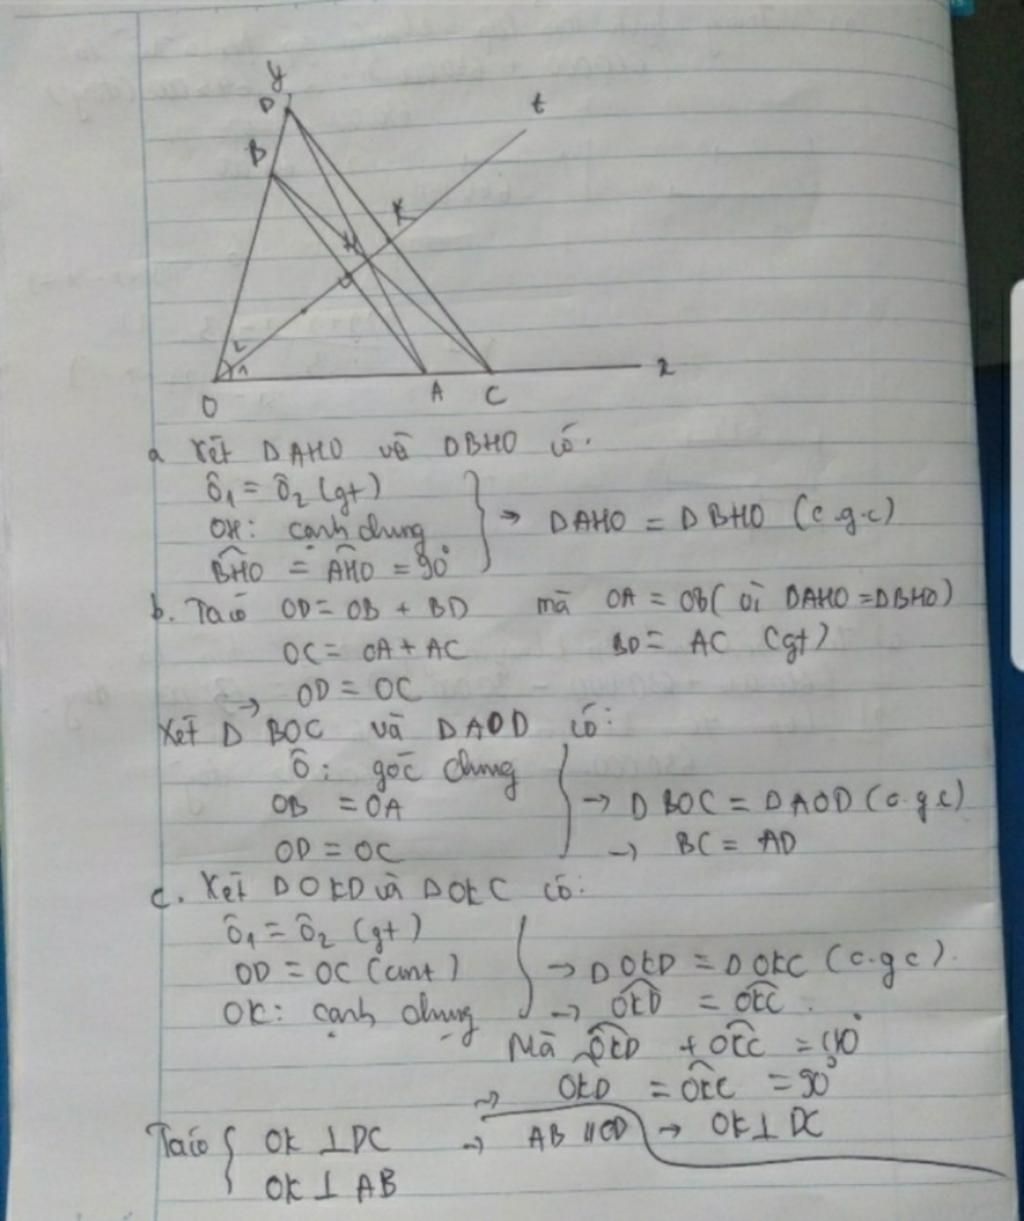 y
D
t
B
K
H
2
1
O
A
C
x
a Xét DAHO và DBHO có.
Ô1 = Ô2 (gt)
OH: cạnh chung
BHO = AHO = 90°
=> DAHO = DBHO (c.g.c)
b. Ta có OD = OB + BD mà OA = OB (vì DAHO = DBHO)
OC = OA + AC BD = AC (gt)
→ OD = OC
Xét D BOC và DAOD có:
Ô: góc chung
OB = OA
OD = OC
→ D BOC = DAOD (c.g.c)
→ BC = AD
c. Xét DOKD và DOKC có:
Ô1 = Ô2 (gt)
OD = OC (cmt)
OK: cạnh chung
→ DOKD = DOKC (c.g.c).
→ OKD = OKC.
Mà OKD + OKC = 180°
→ OKD = OKC = 90°
→ OK ⊥ DC
Ta có { OK ⊥ DC → AB // CD
OK ⊥ AB